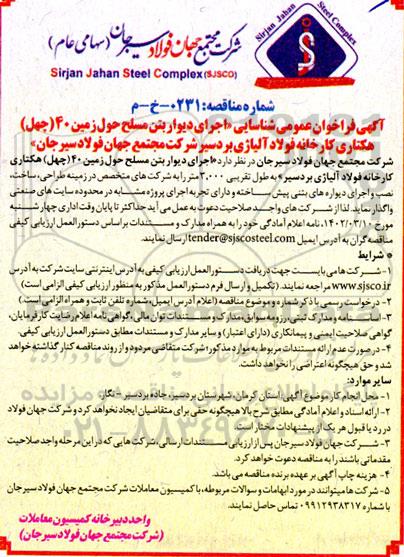 Sirjan Jahan Steel Complex
شرکت مجتمع جهان فولاد سیرجان (سهامی عام)
Sirjan Jahan Steel Complex (SJSCO)
شماره مناقصه: ۰۲۳۱-خ-م
آگهی فراخوان عمومی شناسایی «اجرای دیوار بتن مسلح حول زمین ۴۰ (چهل)
هکتاری کارخانه فولاد آلیاژی بردسیر شرکت مجتمع جهان فولاد سیرجان»
شرکت مجتمع جهان فولاد سیرجان در نظر دارد «اجرای دیوار بتن مسلح حول زمین ۴۰ (چهل) هکتاری
کارخانه فولاد آلیاژی بردسیر» به طول تقریبی ۳.۰۰۰ متر را به شرکت های متخصص در زمینه طراحی، ساخت،
نصب و اجرای دیواره های بتنی پیش ساخته و دارای تجربه اجرای پروژه مشابه در محدوده سایت های صنعتی
واگذار نماید. لذا از شرکت های واجد صلاحیت دعوت به عمل می آید حداکثر تا پایان وقت اداری چهارشنبه
مورخ ۱۴۰۲/۰۳/۱۰، نامه اعلام آمادگی خود را به همراه مدارک و مستندات براساس دستورالعمل ارزیابی کیفی
مناقصه گران به آدرس ایمیل tender@sjscosteel.com ارسال نمایند.
* شرایط
۱- شرکت ها می بایست جهت دریافت دستورالعمل ارزیابی کیفی به آدرس اینترنتی سایت شرکت به آدرس
www.sjsco.ir مراجعه نمایند. (تکمیل و ارسال فرم دستورالعمل مذکور به منظور ارزیابی کیفی الزامی است.)
۲- درخواست رسمی با ذکر شماره و موضوع مناقصه (اعلام آدرس ایمیل، شماره تلفن ثابت و همراه الزامی است.)
۳- اساسنامه و مدارک ثبتی، رزومه سوابق، مدارک و مستندات توان مالی، گواهی نامه اعلام رضایت کارفرمایان،
گواهی صلاحیت ایمنی و پیمانکاری (دارای اعتبار) و سایر مدارک و مستندات مطابق دستورالعمل ارزیابی کیفی.
۴- در صورت عدم ارائه مستندات مربوط به موارد مذکور؛ شرکت متقاضی مردود و از روند مناقصه کنار گذاشته خواهد
شد و حق هیچگونه اعتراضی را نخواهد داشت.
سایر موارد:
۱- محل انجام کار موضوع آگهی استان کرمان، شهرستان بردسیر، جاده بردسیر - نگار
۲- ارائه اسناد و اعلام آمادگی مطابق شرح بالا هیچگونه حقی برای متقاضیان ایجاد نخواهد کرد و شرکت جهان فولاد
در رد یا قبول هر یک از پیشنهادات مختار است.
۳- شرکت جهان فولاد سیرجان پس از ارزیابی مستندات ارسالی، شرکت هایی که در این مرحله واجد صلاحیت
مقدماتی باشند را به مناقصه دعوت خواهد کرد.
۴- هزینه چاپ آگهی بر عهده برنده مناقصه می باشد.
۵- شرکت ها میتوانند در مورد ابهامات و سوالات مربوطه، با کمیسیون معاملات شرکت مجتمع جهان فولاد سیرجان
با شماره ۰۹۹۱۲۹۳۸۳۱۷ تماس حاصل نمایند.
واحد دبیرخانه کمیسیون معاملات
(شرکت مجتمع جهان فولاد سیرجان)